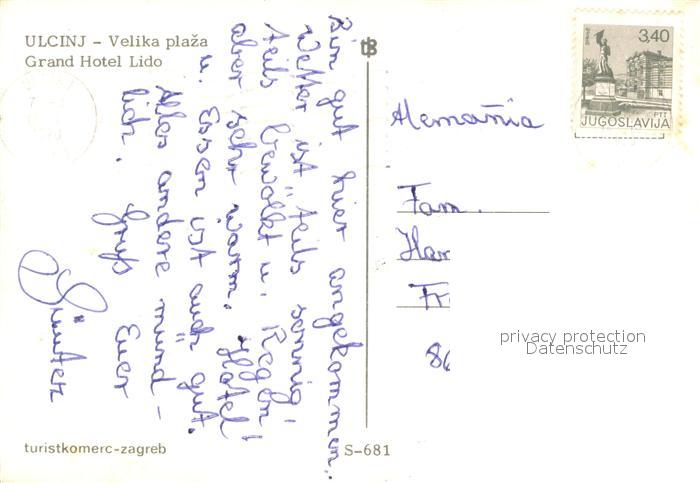 ULCINJ – Velika plaža
Grand Hotel Lido
Bin gut hier angekommen.
Wetter ist teils sonnig,
teils bewölkt u. Regen,
aber sehr warm. Hotel
u. Essen ist auch gut.
Alles andere münd-
lich. Gruß Euer
Günter
turistkomerc-zagreb
S-681
3,40
PTT
JUGOSLAVIJA
Alemañia
Fam.
Har
Fr
86
privacy protection
Datenschutz